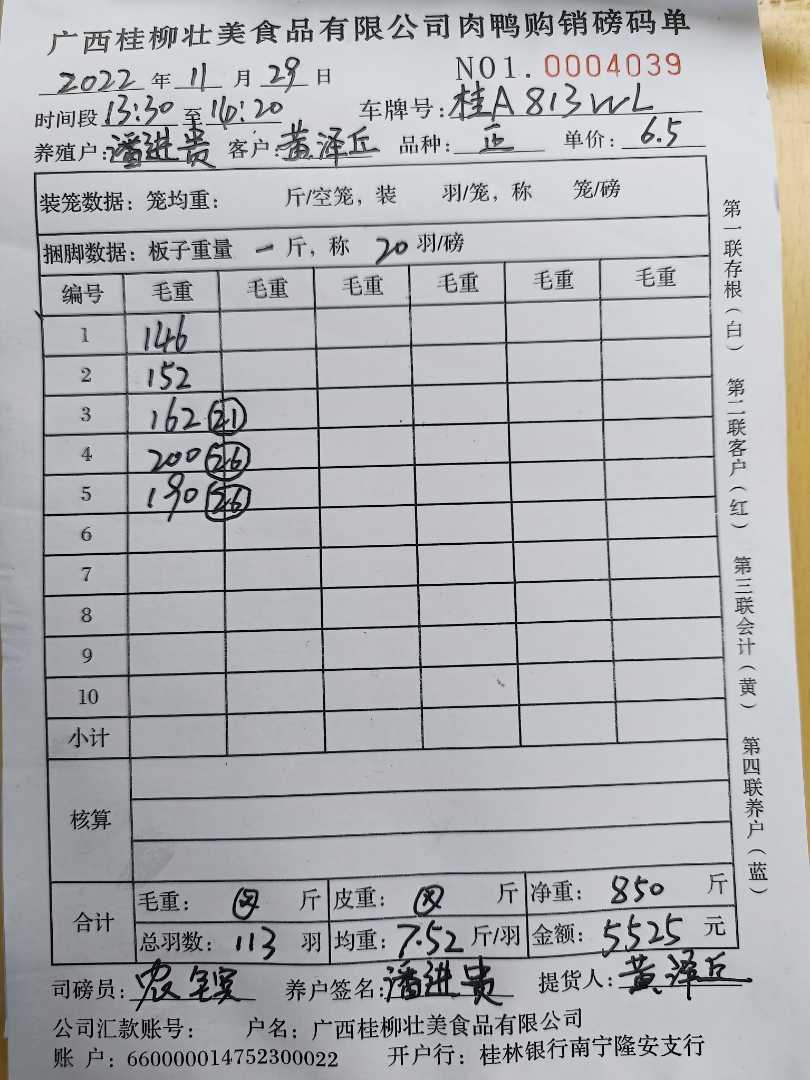 广西桂柳壮美食品有限公司肉鸭购销磅码单
2022 年 11 月 29 日 NO1. 0004039
时间段 13:30 至 14:20 车牌号: 桂A813WL
养殖户: 潘进贵 客户: 黄泽丘 品种: 正 单价: 6.5
装笼数据: 笼均重: 斤/空笼, 装 羽/笼, 称 笼/磅
捆脚数据: 板子重量 一 斤, 称 20 羽/磅
编号 毛重 毛重 毛重 毛重 毛重 毛重
1 146
2 152
3 162 21
4 200 26
5 190 26
6
7
8
9
10
小计
核算
合计 毛重: 斤 皮重: 斤 净重: 850 斤
总羽数: 113 羽 均重: 7.52 斤/羽 金额: 5525 元
司磅员: 农 养户签名: 潘进贵 提货人: 黄泽丘
公司汇款账号: 户名: 广西桂柳壮美食品有限公司
账 户: 660000014752300022 开户行: 桂林银行南宁隆安支行
第一联存根(白) 第二联客户(红) 第三联会计(黄) 第四联养户(蓝)